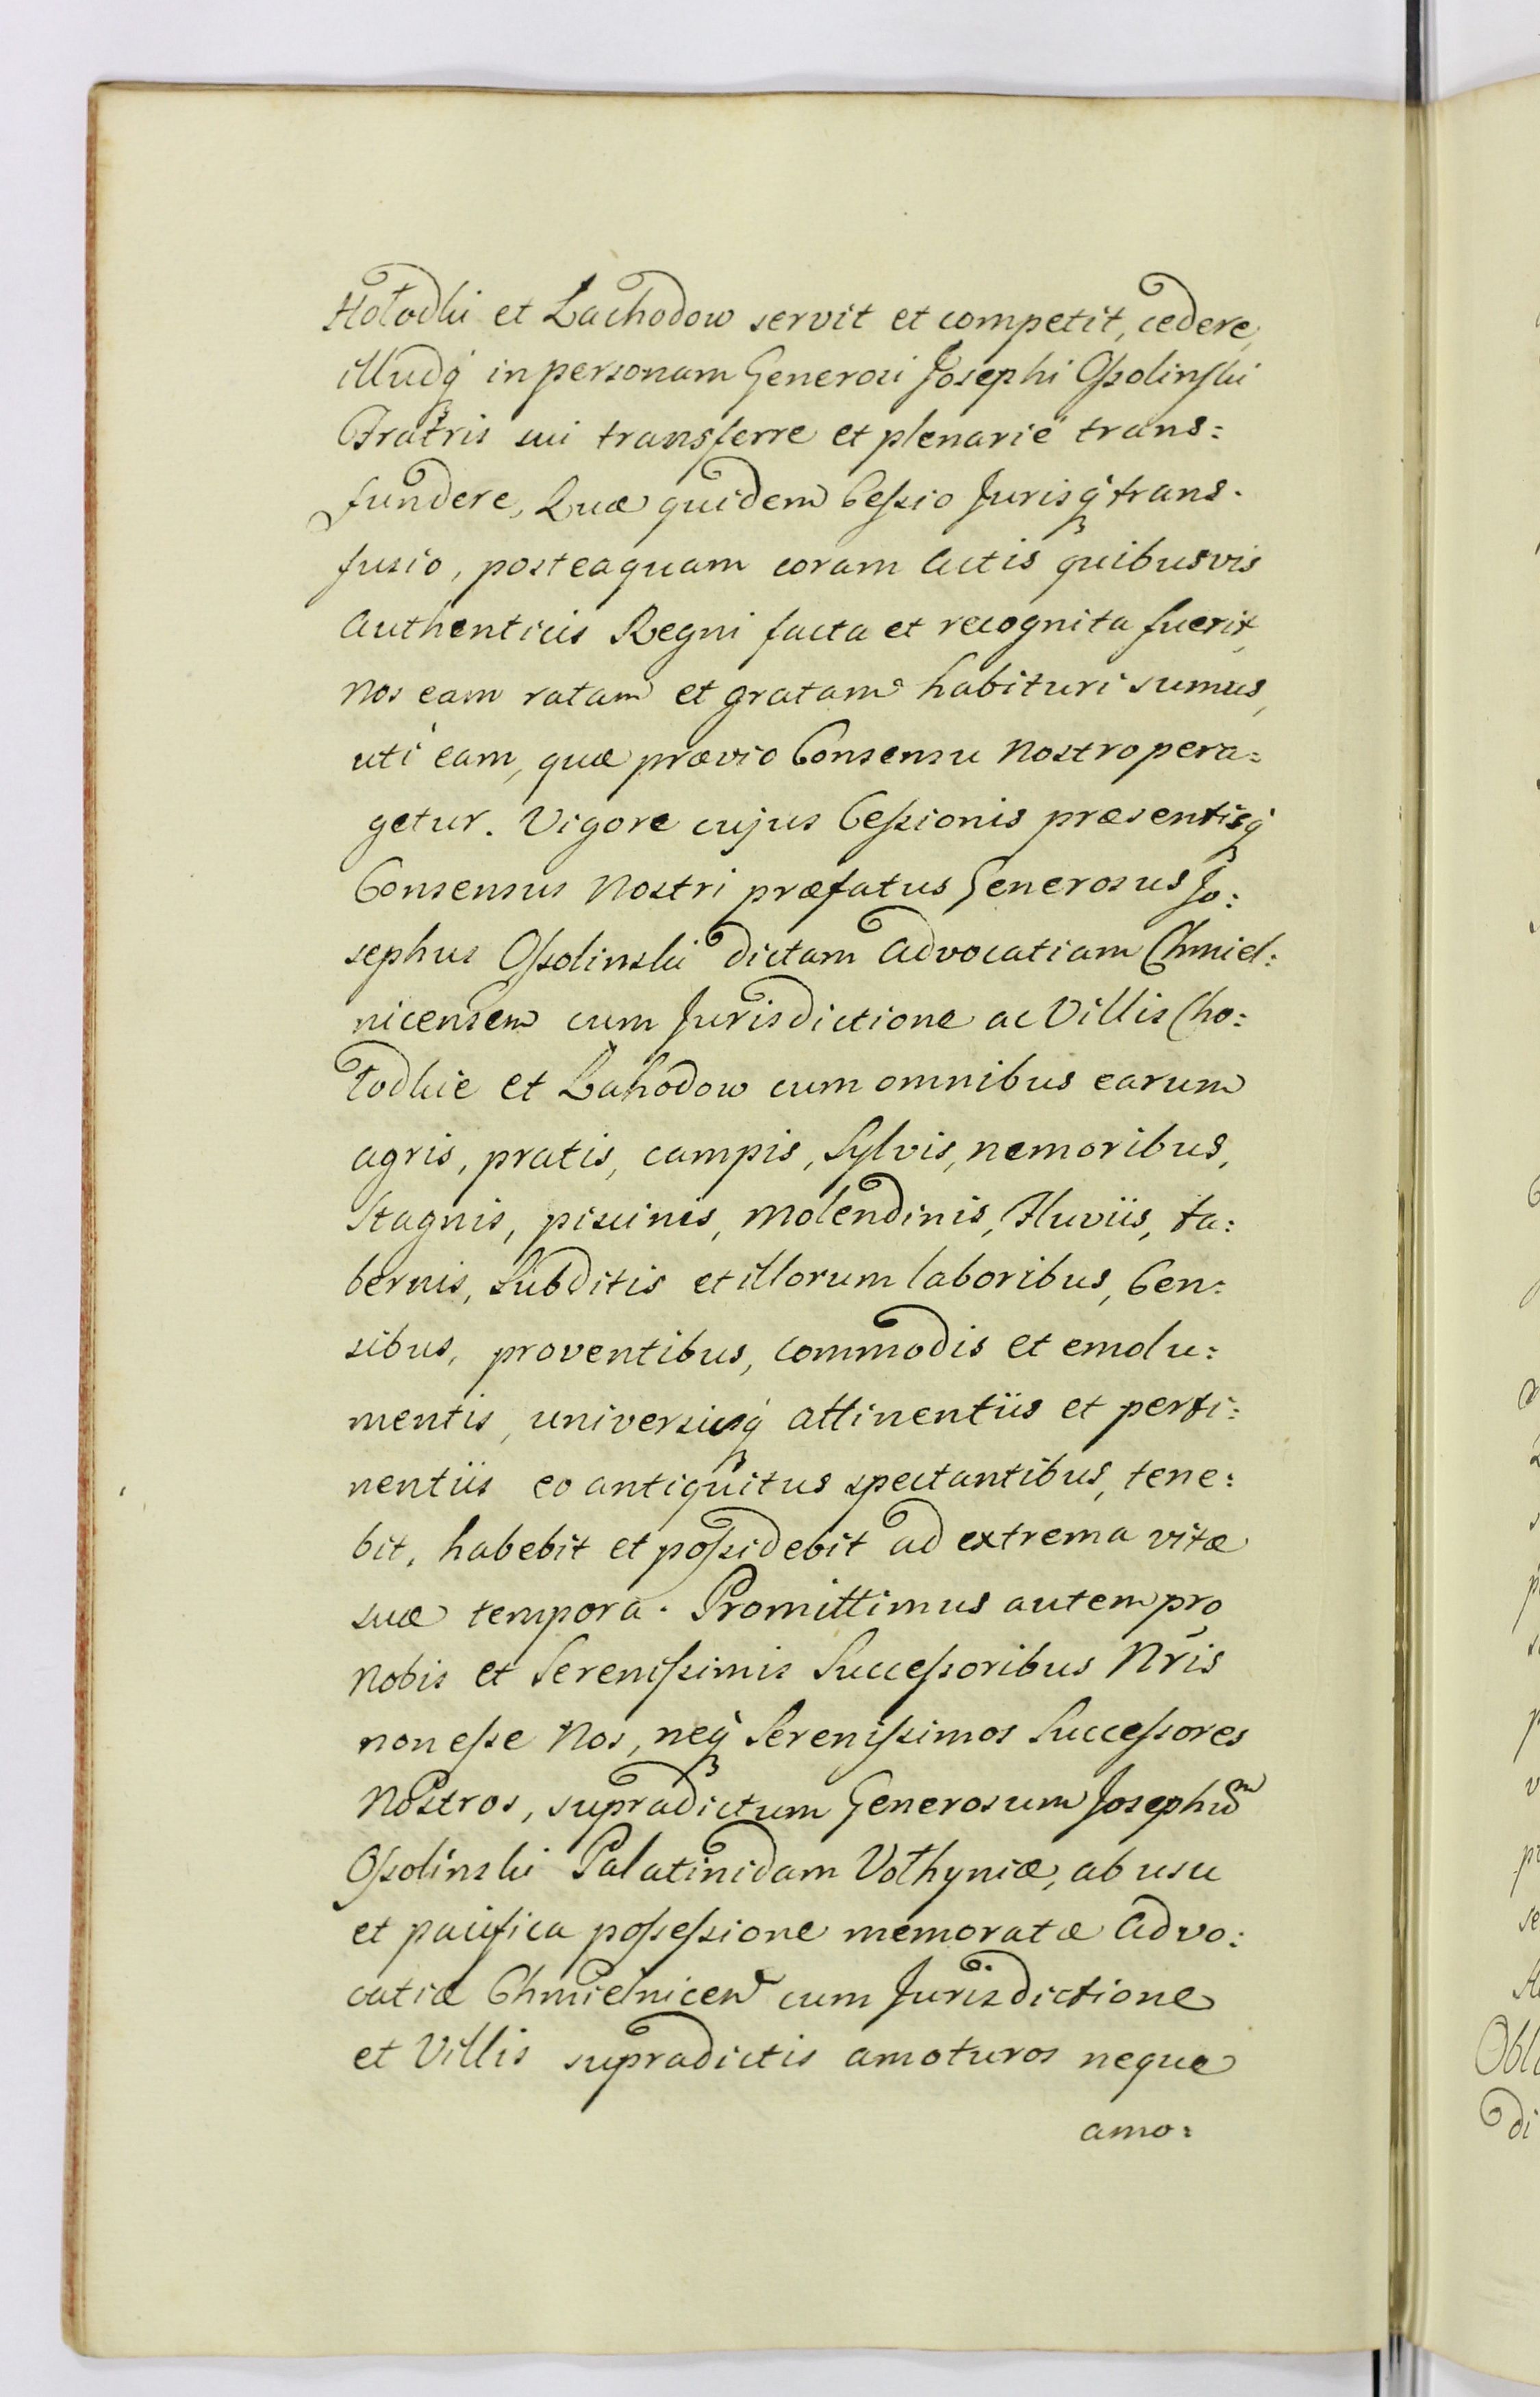 Hołodki et Lachodow servit et competit, cedere,
illudq́ in personam Generosi Josephi Oſsolinſki
Fratris sui transferre et plenarie trans=
fundere, Quæ quidem Ceſsio Jurisq́ trans=
fusio, posteaquam coram Actis quibusvis
Authenticis Regni facta et recognita fuerit,
Nos eam ratam et gratam habituri sumus,
uti eam, quæ prævio Consensu Nostro pera=
getur. Vigore cujus Ceſsionis præsentisq́
Consensus Nostri præfatus Generosus Jo=
sephus Oſsolinski dictam Advocatiam Chmiel=
nicensem cum Jurisdictione ac Villis Cho=
łodkie et Lahodow cum omnibus earum
agris, pratis, campis, Sylvis, nemoribus,
Stagnis, piscinis, Molendinis, Fluviis, ta=
bernis, Subditis et illorum laboribus, Cen=
sibus, proventibus, commodis et emolu=
mentis, universisq́ attinentiis et perti=
nentiis eo antiquitus spectantibus, tene=
bit, habebit et poſsidebit ad extrema vitæ
suæ tempora. Promittimus autem pro
Nobis et Sereniſsimis Succeſsoribus Nrīs
non eſse Nos, neq́ Sereniſsimos Succeſsores
Nostros, supradictum Generosum Josephuᵐ
Oſsolinski Palatinidam Vołhyniæ, ab usu
et pacifica poſseſsione memoratæ Advo=
catiæ Chmielnicen cum Jurisdictione
et Villis supradictis amoturos neque
amo=